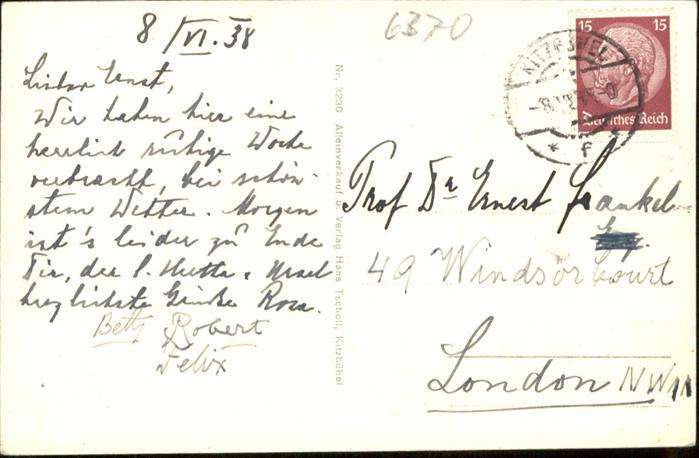 8/VI.38
6370
Lieber Ernst,
Wir haben hier eine
herrlich ruhige Woche
verbracht, bei schön-
stem Wetter. Morgen
ist's leider zu Ende
Dir, der l. Mutter u. Ursel
herzlichste Grüße Rosa.
Betty Robert
Felix
Nr. 3230 Alleinverkauf u. Verlag Hans Tscholl, Kitzbühel
15 15
Deutsches Reich
KITZBÜHEL
* f *
Prof Dr Ernest Frankel
49 Windsor Court
London NW11